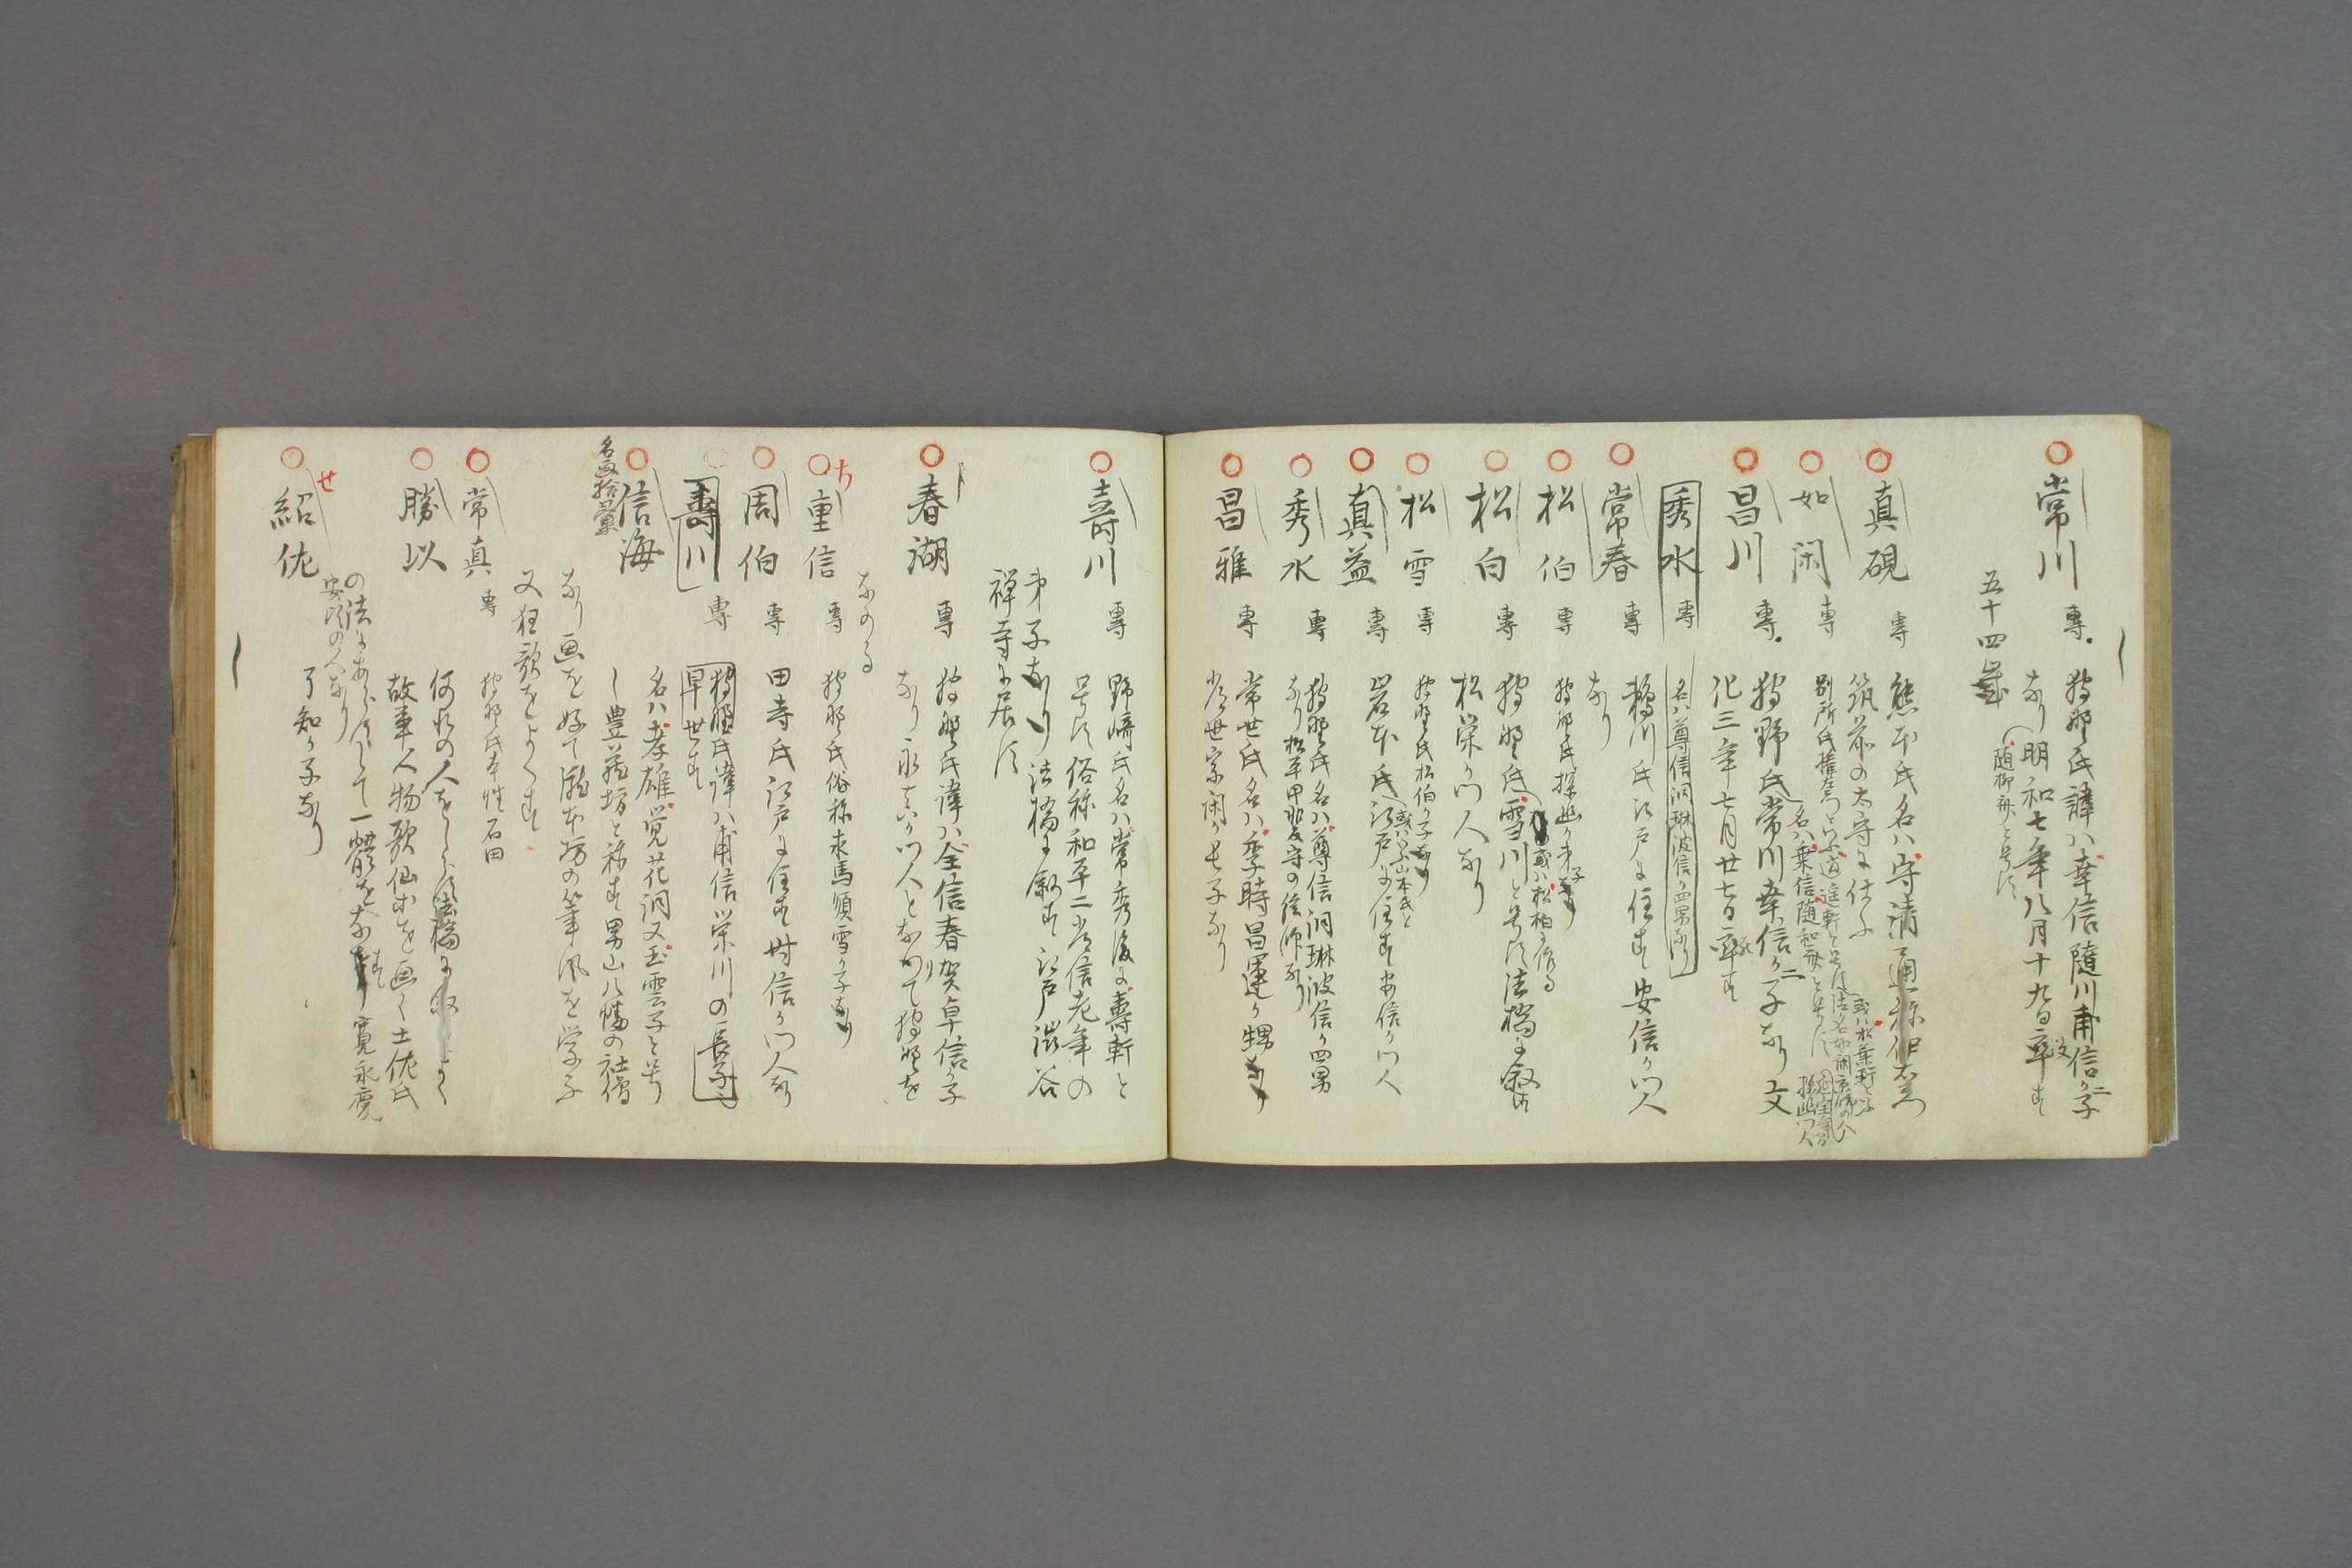 常川 専 狩野氏諱ハ幸信随川甫信ヶ二子
なり明和七年八月十九日卒す
随柳斎と号す
五十四歳
真硯 専 熊本氏名ハ守清通称伊左衛門
筑前の太守に仕ふ
如閑 専 別所氏
名ハ乗信随和斎と号す
昌川 専 狩野氏常川幸信ヶ二子なり文
化三年七月廿七日卒す
秀水 専 名ハ尊信洞琳波信ヶ四男なり
常春 専 鶴川氏江戸に住す安信ヶ門人
なり
松伯 専 狩野氏探幽ヶ弟子なり
或ハ松柏に作る
松白 専 狩野氏雪川と号す法橋に叙す
松栄ヶ門人なり
松雪 専 狩野氏松伯ヶ子なり
真益 専 岩本氏江戸に住す安信ヶ門人
或ハ山本氏と
秀水 専 狩野氏名ハ尊信洞琳波信ヶ四男
なり松平甲斐守の絵師なり
昌雅 専 常世氏名ハ季時昌運ヶ甥なり
常世宗閑ヶ長子なり
壽川 専 野崎氏名ハ常秀後に壽軒と
号す俗称和平二常信老年の
弟子なり法橋に叙す江戸渋谷
禅寺に居す
春湖 専 狩野氏諱ハ全信春賀卓信ヶ子
なり永真ヶ門人となりて狩野を
なのる
重信 専 狩野氏俗称求馬須雪ヶ子なり
周伯 専 田寺氏江戸に住す時信ヶ門人なり
壽川 専 狩野氏諱ハ甫信栄川の長子
早世す
信海 名ハ孝雄覚花洞又玉雲子と号
名画拾彙
し豊蔵坊と称す男山八幡の社僧
なり画を好て瀧本坊の筆風を学ふ
又狂歌をよくす
常真 専 狩野氏本性石田
勝以 何れの人をしらす法橋に叙しよく
故事人物歌仙等を画く土佐氏
の法にあらすして一體をなす寛永慶
安頃の人なり
紹佐 了知ヶ子なり